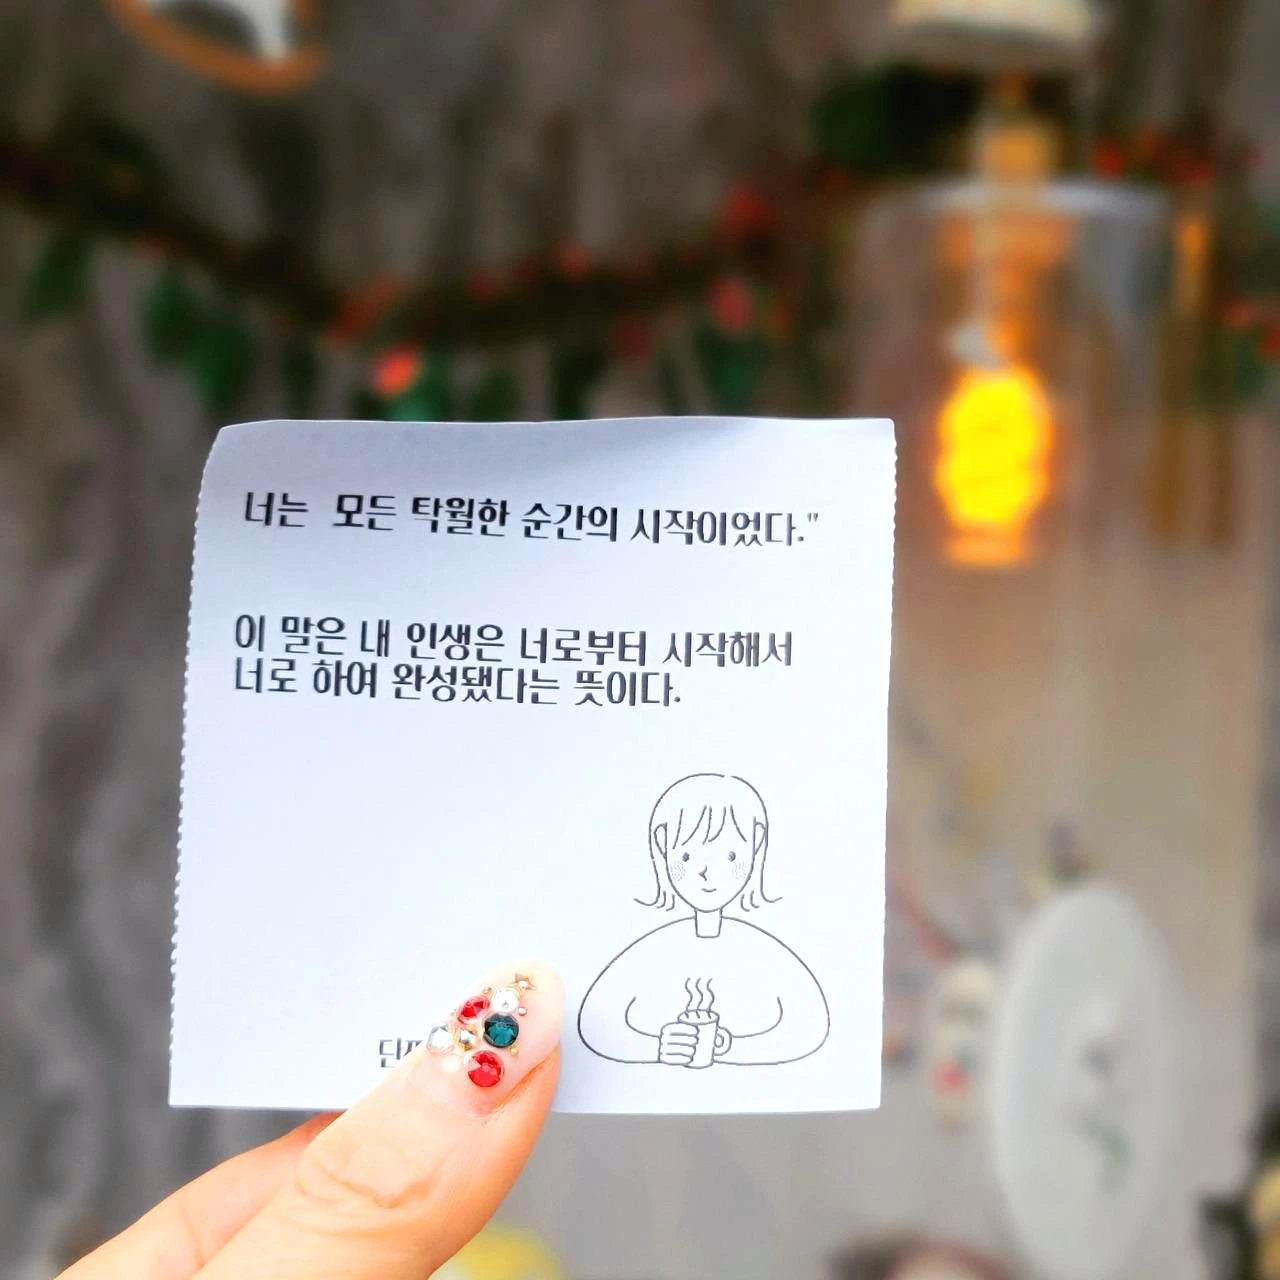 너는 모든 탁월한 순간의 시작이었다."
이 말은 내 인생은 너로부터 시작해서
너로 하여 완성됐다는 뜻이다.